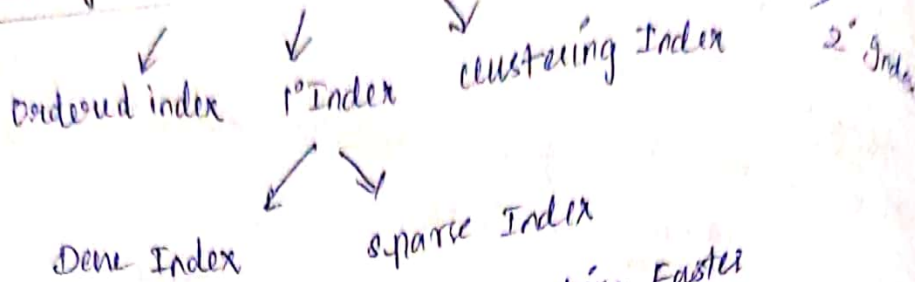 Ordered index 1° Index clustering Index 2°
Dene Index sparse Index
Faster